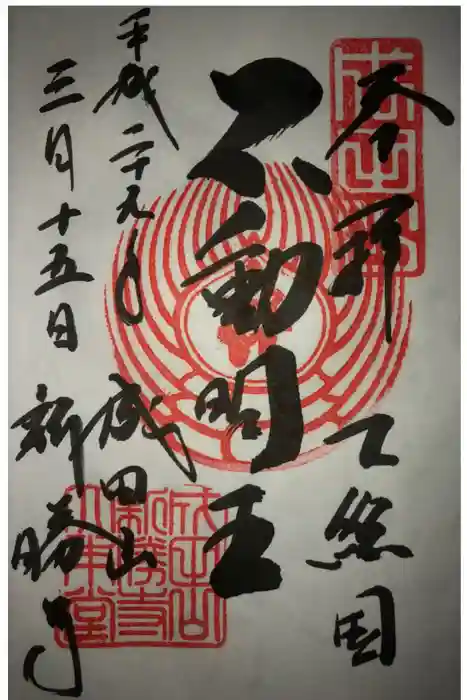 奉拝 下総国
不動明王
平成二十九年
三月十五日
成田山
新勝寺
成田山
成田山
新勝寺
大本堂